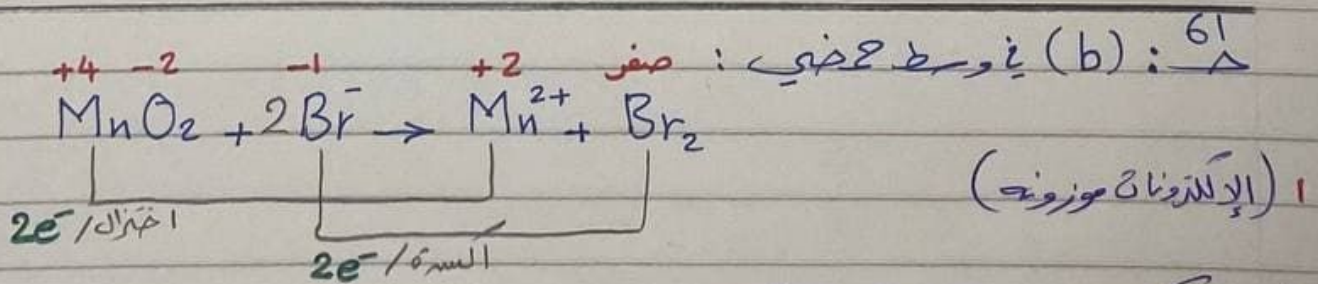 61 ح : (b) في وسط حمضي :
+4 -2 -1 +2 صفر
MnO₂ + 2Br⁻ → Mn²⁺ + Br₂
1 (الإلكترونات موزونه)
2e⁻/اختزال
2e⁻/اكسدة